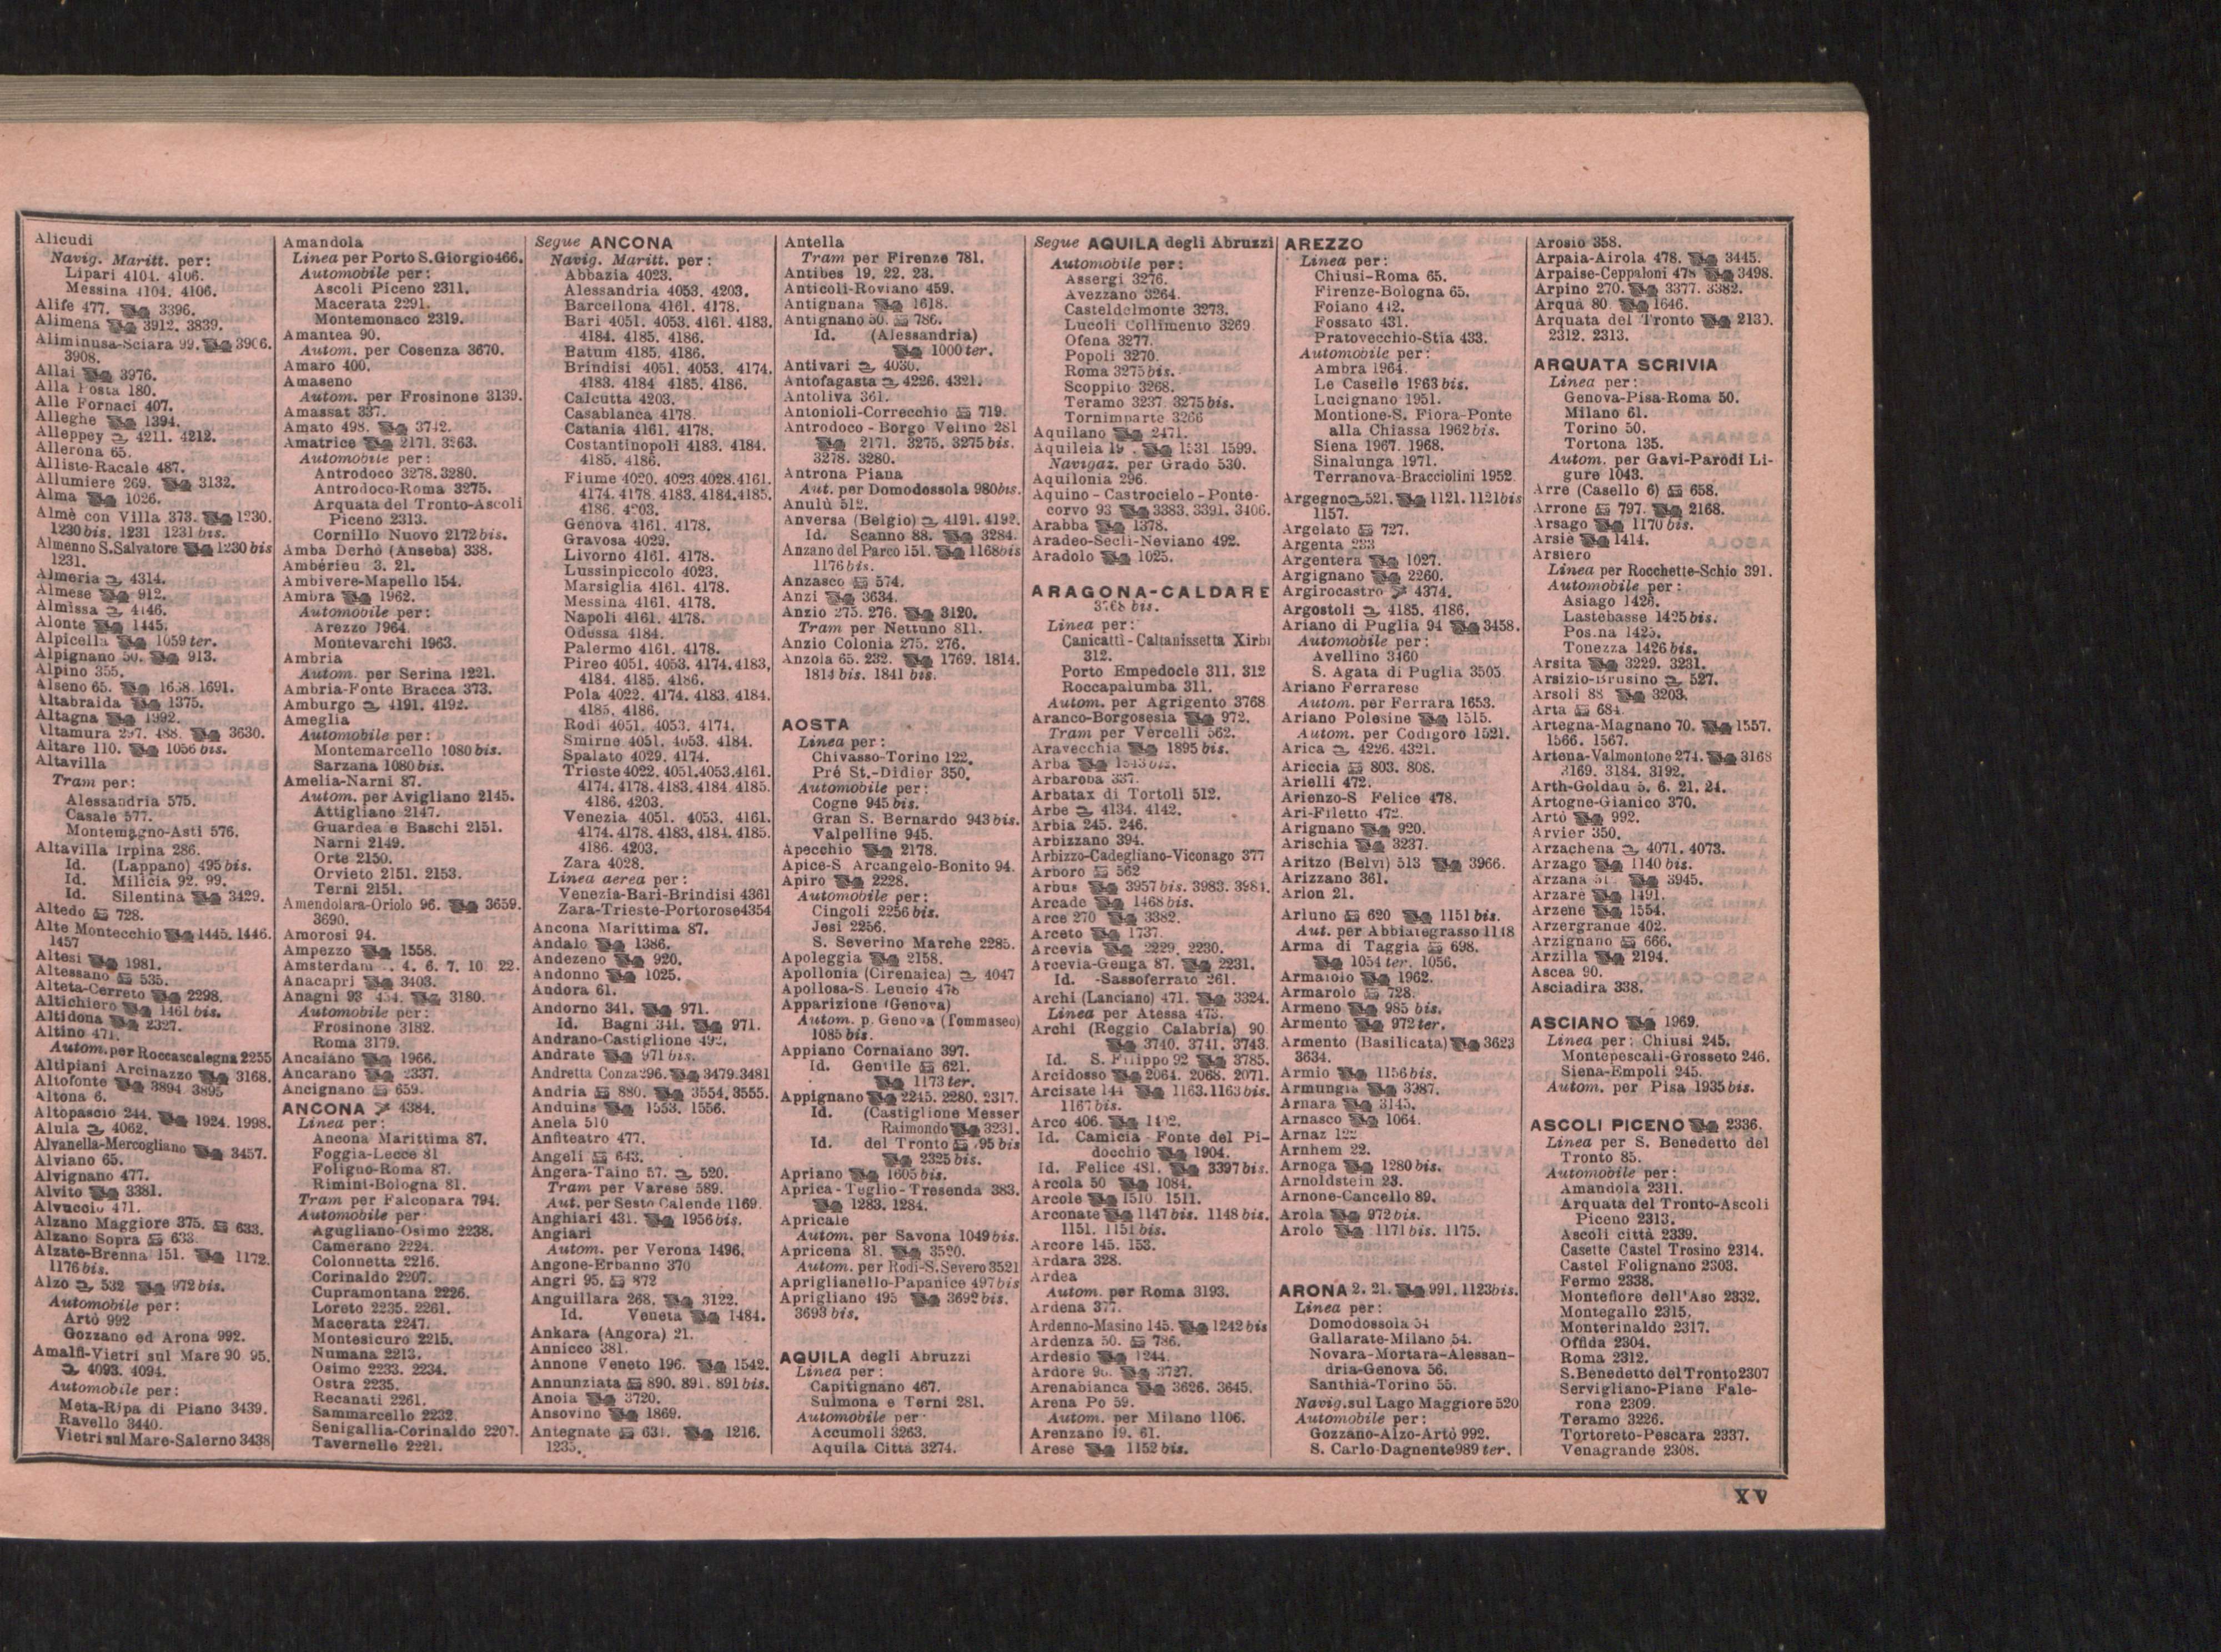 Alicudi
Navig. Maritt. per:
Lipari 4104. 4106.
Messina 4104. 4106.
Alife 477. 3396.
Alimena 3912. 3839.
Aliminusa-Sciara 99. 3906.
3908.
Allai 3976.
Alla Posta 180.
Alle Fornaci 407.
Alleghe 1394.
Alleppey 4211. 4212.
Allerona 65.
Alliste-Racale 487.
Allumiere 269. 3132.
Alma 1026.
Almè con Villa 373. 1230.
1230 bis. 1231 1231 bis.
Almenno S. Salvatore 1230 bis
1231.
Almeria 4314.
Almese 912.
Almissa 4146.
Alonte 1445.
Alpicella 1059 ter.
Alpignano 50. 913.
Alpino 355.
Alseno 65. 1658. 1691.
Altabraida 1375.
Altagna 1992.
Altamura 297. 488. 3630.
Altare 110. 1056 bis.
Altavilla
Tram per:
Alessandria 575.
Casale 577.
Montemagno-Asti 576.
Altavilla Irpina 286.
Id. (Lappano) 495 bis.
Id. Milicia 92. 99.
Id. Silentina 3429.
Altedo 728.
Alte Montecchio 1445. 1446.
1457
Altesi 1981.
Altessano 535.
Alteta-Cerreto 2298.
Altichiero 1461 bis.
Altidona 2327.
Altino 471.
Autom. per Roccascalegna 2255
Altipiani Arcinazzo 3168.
Altofonte 3894 3895
Altona 6.
Altopascio 244. 1924. 1998.
Alula 4062.
Alvanella-Mercogliano 3457.
Alviano 65.
Alvignano 477.
Alvito 3381.
Alvuccio 471.
Alzano Maggiore 375. 633.
Alzano Sopra 633.
Alzate-Brenna 151. 1172.
1176 bis.
Alzo 532 972 bis.
Automobile per:
Artò 992
Gozzano ed Arona 992.
Amalfi-Vietri sul Mare 90 95.
4093. 4094.
Automobile per:
Meta-Ripa di Piano 3439.
Ravello 3440.
Vietri sul Mare-Salerno 3438
Amandola
Linea per Porto S. Giorgio 466.
Automobile per:
Ascoli Piceno 2311.
Macerata 2291.
Montemonaco 2319.
Amantea 90.
Autom. per Cosenza 3670.
Amaro 400.
Amaseno
Autom. per Frosinone 3139.
Amassat 337.
Amato 498. 3742.
Amatrice 2171. 3263.
Automobile per:
Antrodoco 3278. 3280.
Antrodoco-Roma 3275.
Arquata del Tronto-Ascoli
Piceno 2313.
Cornillo Nuovo 2172 bis.
Amba Derhò (Anseba) 338.
Ambérieu 3. 21.
Ambivere-Mapello 154.
Ambra 1962.
Automobile per:
Arezzo 1964.
Montevarchi 1963.
Ambria
Autom. per Serina 1221.
Ambria-Fonte Bracca 373.
Amburgo 4191. 4192.
Ameglia
Automobile per:
Montemarcello 1080 bis.
Sarzana 1080 bis.
Amelia-Narni 87.
Autom. per Avigliano 2145.
Attigliano 2147.
Guardea e Baschi 2151.
Narni 2149.
Orte 2150.
Orvieto 2151. 2153.
Terni 2151.
Amendolara-Oriolo 96. 3659.
3690.
Amorosi 94.
Ampezzo 1558.
Amsterdam 4. 6. 7. 10 22.
Anacapri 3403.
Anagni 93 3180.
Automobile per:
Frosinone 3182.
Roma 3179.
Ancaiano 1966.
Ancarano 2337.
Ancignano 659.
ANCONA 4384.
Linea per:
Ancona Marittima 87.
Foggia-Lecce 81
Foligno-Roma 87.
Rimini-Bologna 81.
Tram per Falconara 794.
Automobile per
Agugliano-Osimo 2238.
Camerano 2224.
Colonnetta 2216.
Corinaldo 2207.
Cupramontana 2226.
Loreto 2235. 2261.
Macerata 2247.
Montesicuro 2215.
Numana 2213.
Osimo 2233. 2234.
Ostra 2235.
Recanati 2261.
Sammarcello 2232.
Senigallia-Corinaldo 2207.
Tavernelle 2221.
Segue ANCONA
Navig. Maritt. per:
Abbazia 4023.
Alessandria 4053. 4203.
Barcellona 4161. 4178.
Bari 4051. 4053. 4161. 4183.
4184. 4185. 4186.
Batum 4185. 4186.
Brindisi 4051. 4053. 4174.
4183. 4184 4185. 4186.
Calcutta 4203.
Casablanca 4178.
Catania 4161. 4178.
Costantinopoli 4183. 4184.
4185. 4186.
Fiume 4020. 4023. 4028. 4161.
4174. 4178. 4183. 4184. 4185.
4186. 4203.
Genova 4161. 4178.
Gravosa 4029.
Livorno 4161. 4178.
Lussinpiccolo 4023.
Marsiglia 4161. 4178.
Messina 4161. 4178.
Napoli 4161. 4178.
Odessa 4184.
Palermo 4161. 4178.
Pireo 4051. 4053. 4174. 4183.
4184. 4185. 4186.
Pola 4022. 4174. 4183. 4184.
4185. 4186.
Rodi 4051. 4053. 4174.
Smirne 4051. 4053. 4184.
Spalato 4029. 4174.
Trieste 4022. 4051. 4053. 4161.
4174. 4178. 4183. 4184. 4185.
4186. 4203.
Venezia 4051. 4053. 4161.
4174. 4178. 4183. 4184. 4185.
4186. 4203.
Zara 4028.
Linea aerea per:
Venezia-Bari-Brindisi 4361
Zara-Trieste-Portorose 4354
Ancona Marittima 87.
Andalo 1386.
Andezeno 920.
Andonno 1025.
Andora 61.
Andorno 341. 971.
Id. Bagni 341. 971.
Andrano-Castiglione 492.
Andrate 971 bis.
Andretta Conza 296. 3479. 3481
Andria 880. 3554. 3555.
Anduins 1553. 1556.
Anela 510
Anfiteatro 477.
Angeli 643.
Angera-Taino 57. 520.
Tram per Varese 589.
Aut. per Sesto Calende 1169.
Anghiari 431. 1956 bis.
Angiari
Autom. per Verona 1496.
Angone-Erbanno 370
Angri 95. 872
Anguillara 268. 3122.
Id. Veneta 1484.
Ankara (Angora) 21.
Annicco 381.
Annone Veneto 196. 1542.
Annunziata 890. 891. 891 bis.
Anoia 3720.
Ansovino 1869.
Antegnate 631. 1216.
1235.
Antella
Tram per Firenze 781.
Antibes 19. 22. 23.
Anticoli-Roviano 459.
Antignana 1618.
Antignano 50. 786.
Id. (Alessandria)
1000 ter.
Antivari 4030.
Antofagasta 4226. 4321.
Antoliva 361.
Antonioli-Correcchio 719.
Antrodoco - Borgo Velino 281
2171. 3275. 3275 bis.
3278. 3280.
Antrona Piana
Aut. per Domodossola 980 bis.
Anulù 512.
Anversa (Belgio) 4191. 4192.
Id. Scanno 88. 3284.
Anzano del Parco 151. 1168 bis
1176 bis.
Anzasco 574.
Anzi 3634.
Anzio 275. 276. 3120.
Tram per Nettuno 811.
Anzio Colonia 275. 276.
Anzola 65. 232. 1769. 1814.
1814 bis. 1841 bis.
AOSTA
Linea per:
Chivasso-Torino 122.
Pré St.-Didier 350.
Automobile per:
Cogne 945 bis.
Gran S. Bernardo 943 bis.
Valpelline 945.
Apecchio 2178.
Apice-S Arcangelo-Bonito 94.
Apiro 2228.
Automobile per:
Cingoli 2256 bis.
Jesi 2256.
S. Severino Marche 2285.
Apoleggia 2158.
Apollonia (Cirenaica) 4047
Apollosa-S. Leucio 478
Apparizione (Genova)
Autom. p. Genova (Tommaseo)
1085 bis.
Appiano Cornaiano 397.
Id. Gentile 621.
1173 ter.
Appignano 2245. 2280. 2317.
Id. (Castiglione Messer
Raimondo 3231.
Id. del Tronto 95 bis
2325 bis.
Apriano 1605 bis.
Aprica-Teglio-Tresenda 383.
1283. 1284.
Apricale
Autom. per Savona 1049 bis.
Apricena 81. 3520.
Autom. per Rodi-S. Severo 3521
Apriglianello-Papanice 497 bis
Aprigliano 495 3692 bis.
3693 bis.
AQUILA degli Abruzzi
Linea per:
Capitignano 467.
Sulmona e Terni 281.
Automobile per
Accumoli 3263.
Aquila Città 3274.
Segue AQUILA degli Abruzzi
Automobile per:
Assergi 3276.
Avezzano 3264.
Casteldelmonte 3273.
Lucoli Collimento 3269
Ofena 3277.
Popoli 3270.
Roma 3275 bis.
Scoppito 3268.
Teramo 3237. 3275 bis.
Tornimparte 3266
Aquilano 2471.
Aquileia 1531 1599.
Navigaz. per Grado 530.
Aquilonia 296.
Aquino - Castrocielo - Ponte-
corvo 93 3383. 3391. 3406.
Arabba 1378.
Aradeo-Seclì-Neviano 492.
Aradolo 1025.
ARAGONA-CALDARE
3768 bis.
Linea per:
Canicattì - Caltanissetta Xirbi
312.
Porto Empedocle 311. 312
Roccapalumba 311.
Autom. per Agrigento 3768
Aranco-Borgosesia 972.
Tram per Vercelli 562.
Aravecchia 1895 bis.
Arba 1543 bis.
Arbaroba 337.
Arbatax di Tortolì 512.
Arbe 4134. 4142.
Arbia 245. 246.
Arbizzano 394.
Arbizzo-Cadegliano-Viconago 377
Arboro 562
Arbus 3957 bis. 3983. 3984.
Arcade 1468 bis.
Arce 270 3382.
Arceto 1737.
Arcevia 2229. 2230.
Arcevia-Genga 87. 2231.
Id. -Sassoferrato 261.
Archi (Lanciano) 471. 3324.
Linea per Atessa 473.
Archi (Reggio Calabria) 90
3740. 3741. 3743.
Id. S. Filippo 92 3785.
Arcidosso 2064. 2068. 2071.
Arcisate 144 1163. 1163 bis.
1167 bis.
Arco 406.
Id. Camicia Fonte del Pi-
docchio 1904.
Id. Felice 481. 3397 bis.
Arcola 50 1084.
Arcole 1510 1511.
Arconate 1147 bis. 1148 bis.
1151. 1151 bis.
Arcore 145. 153.
Ardara 328.
Ardea
Autom. per Roma 3193.
Ardena 377.
Ardenno-Masino 145. 1242 bis
Ardenza 50. 786.
Ardesio 1244.
Ardore 90. 3727.
Arenabianca 3626. 3645.
Arena Po 59.
Autom. per Milano 1106.
Arenzano 19. 61.
Arese 1152 bis.
AREZZO
Linea per:
Chiusi-Roma 65.
Firenze-Bologna 65.
Foiano 442.
Fossato 431.
Pratovecchio-Stia 433.
Automobile per:
Ambra 1964.
Le Caselle 1963 bis.
Lucignano 1951.
Montione-S. Fiora-Ponte
alla Chiassa 1962 bis.
Siena 1967. 1968.
Sinalunga 1971.
Terranova-Bracciolini 1952.
Argegno 521. 1121. 1121 bis
1157.
Argelato 727.
Argenta 233
Argentera 1027.
Argignano 2260.
Argirocastro 4374.
Argostoli 4185. 4186.
Ariano di Puglia 94 3458.
Automobile per:
Avellino 3460
S. Agata di Puglia 3505.
Ariano Ferrarese
Autom. per Ferrara 1653.
Ariano Polesine 1515.
Autom. per Codigoro 1521.
Arica 4226. 4321.
Ariccia 803. 808.
Arielli 472.
Arienzo-S Felice 478.
Ari-Filetto 472.
Arignano 920.
Arischia 3237.
Aritzo (Belvì) 513 3966.
Arizzano 361.
Arlon 21.
Arluno 620 1151 bis.
Aut. per Abbiategrasso 1148
Arma di Taggia 698.
1054 ter. 1056.
Armaiolo 1962.
Armarolo 728.
Armeno 985 bis.
Armento 972 ter.
Armento (Basilicata) 3623
3634.
Armio 1156 bis.
Armungia 3987.
Arnara 3145.
Arnasco 1064.
Arnaz 122
Arnhem 22.
Arnoga 1280 bis.
Arnoldstein 23.
Arnone-Cancello 89.
Arola 972 bis.
Arolo 1171 bis. 1175.
ARONA 2. 21. 991. 1123 bis.
Linea per:
Domodossola 54
Gallarate-Milano 54.
Novara-Mortara-Alessan-
dria-Genova 56.
Santhià-Torino 55.
Navig. sul Lago Maggiore 520
Automobile per:
Gozzano-Alzo-Artò 992.
S. Carlo-Dagnente 989 ter.
Arosio 358.
Arpaia-Airola 478. 3445.
Arpaise-Ceppaloni 478 3498.
Arpino 270. 3377. 3382.
Arquà 80. 1646.
Arquata del Tronto 2130.
2312. 2313.
ARQUATA SCRIVIA
Linea per:
Genova-Pisa-Roma 50.
Milano 61.
Torino 50.
Tortona 135.
Autom. per Gavi-Parodi Li-
gure 1043.
Arre (Casello 6) 658.
Arrone 797. 2168.
Arsago 1170 bis.
Arsiè 1414.
Arsiero
Linea per Rocchette-Schio 391.
Automobile per:
Asiago 1426.
Lastebasse 1425 bis.
Posina 1425.
Tonezza 1426 bis.
Arsita 3229. 3231.
Arsizio-Brusino 527.
Arsoli 88 3203.
Arta 684.
Artegna-Magnano 70. 1557.
1566. 1567.
Artena-Valmontone 274. 3168
3169. 3184. 3192.
Arth-Goldau 5. 6. 21. 24.
Artogne-Gianico 370.
Artò 992.
Arvier 350.
Arzachena 4071. 4073.
Arzago 1140 bis.
Arzana 3945.
Arzarè 1491.
Arzene 1554.
Arzergrande 402.
Arzignano 666.
Arzilla 2194.
Ascea 90.
Asciadira 338.
ASCIANO 1969.
Linea per: Chiusi 245.
Montepescali-Grosseto 246.
Siena-Empoli 245.
Autom. per Pisa 1935 bis.
ASCOLI PICENO 2336.
Linea per S. Benedetto del
Tronto 85.
Automobile per:
Amandola 2311.
Arquata del Tronto-Ascoli
Piceno 2313.
Ascoli città 2339.
Casette Castel Trosino 2314.
Castel Folignano 2303.
Fermo 2338.
Montefiore dell'Aso 2332.
Montegallo 2315.
Monterinaldo 2317.
Offida 2304.
Roma 2312.
S. Benedetto del Tronto 2307
Servigliano-Piane Fale-
rone 2309.
Teramo 3226.
Tortoreto-Pescara 2337.
Venagrande 2308.
XV